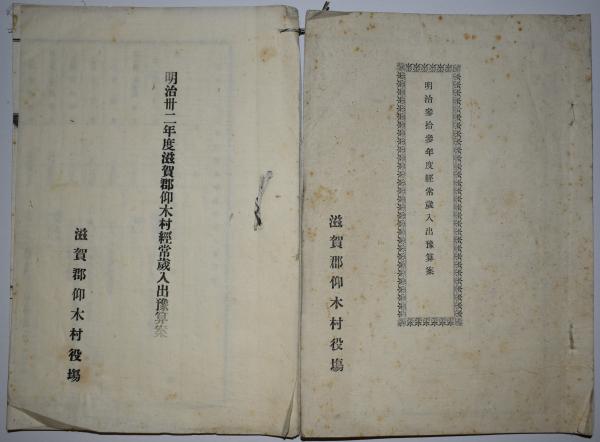 明治卅二年度滋賀郡仰木村經常歳入出豫算案
滋賀郡仰木村役塲
明治參拾參年度經常歳入出豫算案
滋賀郡仰木村役塲